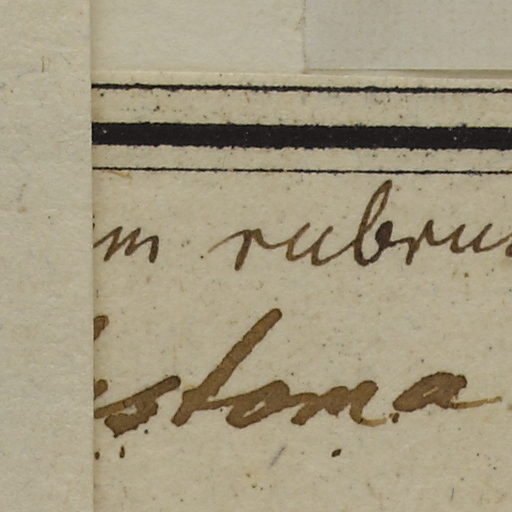 m rubru
stoma